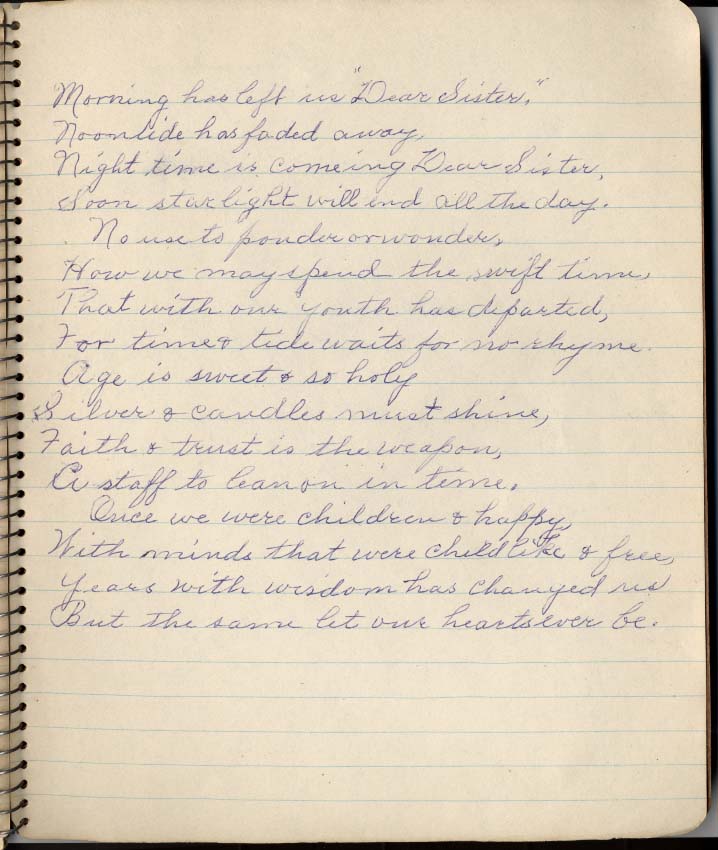 Morning has left us "Dear Sister,"
Noontide has faded away,
Night time is comeing Dear Sister,
Soon starlight will end all the day.
No use to ponder or wonder,
How we may spend the swift time,
That with our youth has departed,
For time & tide waits for no rhyme.
Age is sweet & so holy
Silver & candles must shine,
Faith & trust is the weapon,
A staff to lean on in time.
Once we were children & happy,
With minds that were childlike & free,
Years with wisdom has changed us
But the same let our hearts ever be.